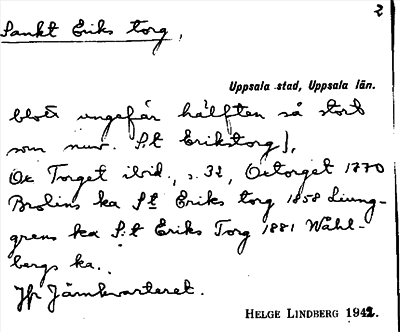 2
Sankt Eriks torg,
Uppsala stad, Uppsala län.
blott ungefär hälften så stort
som nuv. S:t Erikstorg),
Oc Torget ibid., s. 32, Octorget 1770
Brolins ka St Eriks torg 1858 Ljung-
grens ka S:t Eriks Torg 1881 Wåhl-
bergs ka.
Jfr Järnkvarteret.
HELGE LINDBERG 1942.